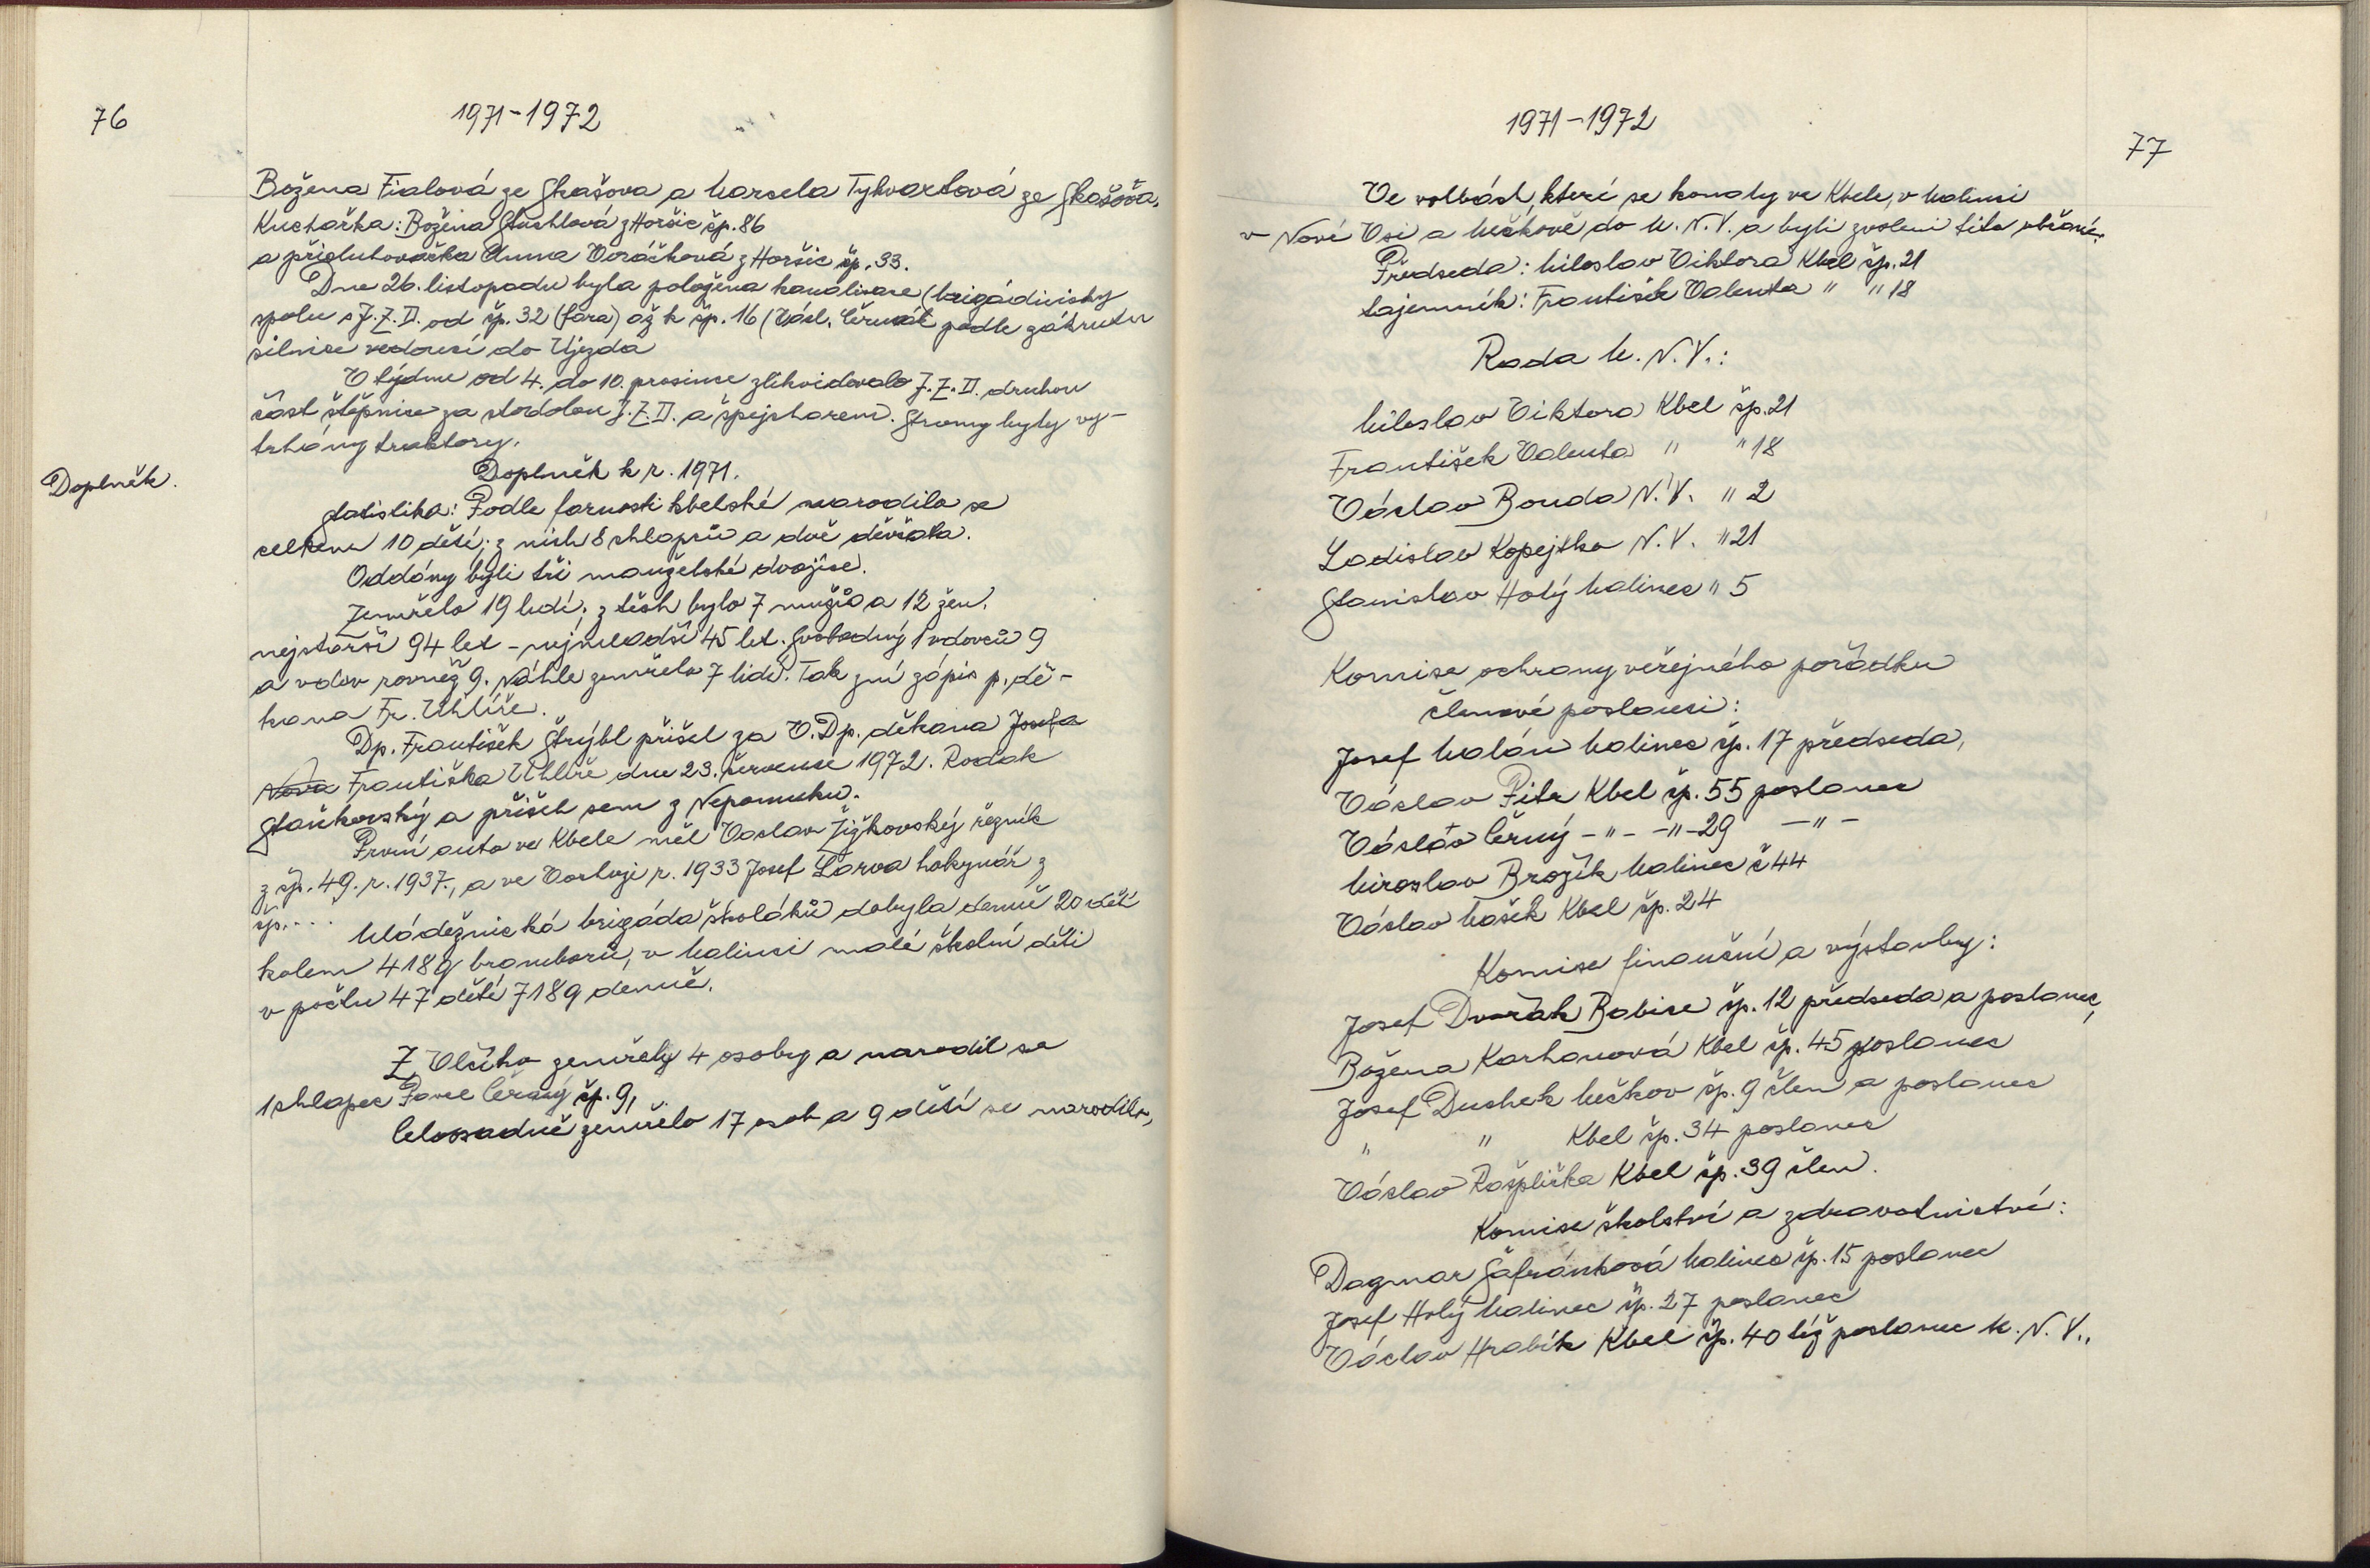 76
1971-1972
Božena Fialová ze Skašova a Marcela Tykvartová ze Skašova.
Kuchařka: Božena Stuchlová z Horšic čp. 86
a přisluhovačka Anna Voráčková z Horšic čp. 33.
Dne 26. listopadu byla položena kanalisace (brigádnicky
spolu s J.Z.D. od čp. 32 (fara) až k čp. 16 (Václ. Čermák podle zákrutu
silnice vedoucí do Újezda
V týdnu od 4. do 10. prosince zlikvidovalo J.Z.D. druhou
část štěpnice za stodolou J.Z.D. a špejcharem. Stromy byly vy-
trhány traktory.
Doplněk k r. 1971.
Doplněk.
Statistika: Podle farnosti kbelské narodilo se
celkem 10 dětí; z nich 8 chlapců a dvě děvčata.
Oddány byli tři manželské dvojice.
Zemřelo 19 lidí; z těch bylo 7 mužů a 12 žen.
nejstarší 94 let - nejmladší 45 let. Svobodný 1 vdovců 9
a vdov rovněž 9. Náhle zemřelo 7 lidí. Tak zní zápis p. dě-
kana Fr. Uhlíře.
Dp. František Strýbl přišel za V. Dp. děkana Josefa
Nova Františka Uhlíře dne 23. července 1972. Rodák
Staňkovský a přišel sem z Nepomuku.
První auto ve Kbele měl Vaclav Žižkovský řezník
z čp. 49. r. 1937., a ve Vochuji r. 1933 Josef Larva hokynář z
čp. ...
Mládežnická brigáda školáků dobyla denně 20 dětí
kolem 418 q bramborů, v Malinci malé školní děti
v počtu 47 dětí 718 q denně.
Z Vlčího zemřely 4 osoby a narodil se
1 chlapec Pavel Černý čp. 9,
Celoosadně zemřelo 17 osob a 9 dětí se narodilo,
1971-1972
77
Ve volbách, které se konaly ve Kbele, v Malinci
v Nové Vsi a Mečkově do M.N.V. a byli zvoleni tito občané.
Předseda: Miloslav Viktora Kbel čp. 21
tajemník: František Valenta " " 18
Rada M.N.V.:
Miloslav Viktora Kbel čp. 21
František Valenta " " 18
Václav Bouda N.V. " 2
Ladislav Kopejtko N.V. " 21
Stanislav Holý Malinec " 5
Komise ochrany veřejného pořádku
členové poslanci:
Josef Malán Malinec čp. 17 předseda,
Václav Pitr Kbel čp. 55 poslanec
Václav Černý -"- -"- 29 -"-
Miroslav Brožík Malinec č 44
Václav Mašek Kbel čp. 24
Komise finanční a výstavby:
Josef Dvořák Babice čp. 12 předseda a poslanec,
Božena Karhanová Kbel čp. 45 poslanec
Josef Duchek Mečkov čp. 9 člen a poslanec
" " Kbel čp. 34 poslanec
Václav Rašplička Kbel čp. 39 člen.
Komise školství a zdravotnictví:
Dagmar Šafránková Malinec čp. 15 poslanec
Josef Holý Malinec čp. 27 poslanec
Václav Hrabík Kbel čp. 40 též poslanec M.N.V.,